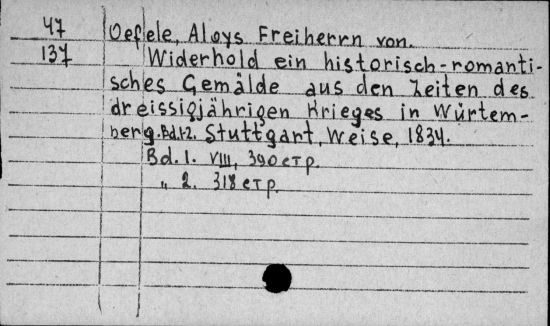 47 Oefele, Aloys Freiherrn von.
137 Widerhold ein historisch-romanti-
sches Gemälde aus den Zeiten des
dreissigjährigen Krieges in Würtem-
berg. Bd. 1-2. Stuttgart, Weise, 1834.
Bd. 1. VIII, 390 стр.
„ 2. 318 стр.